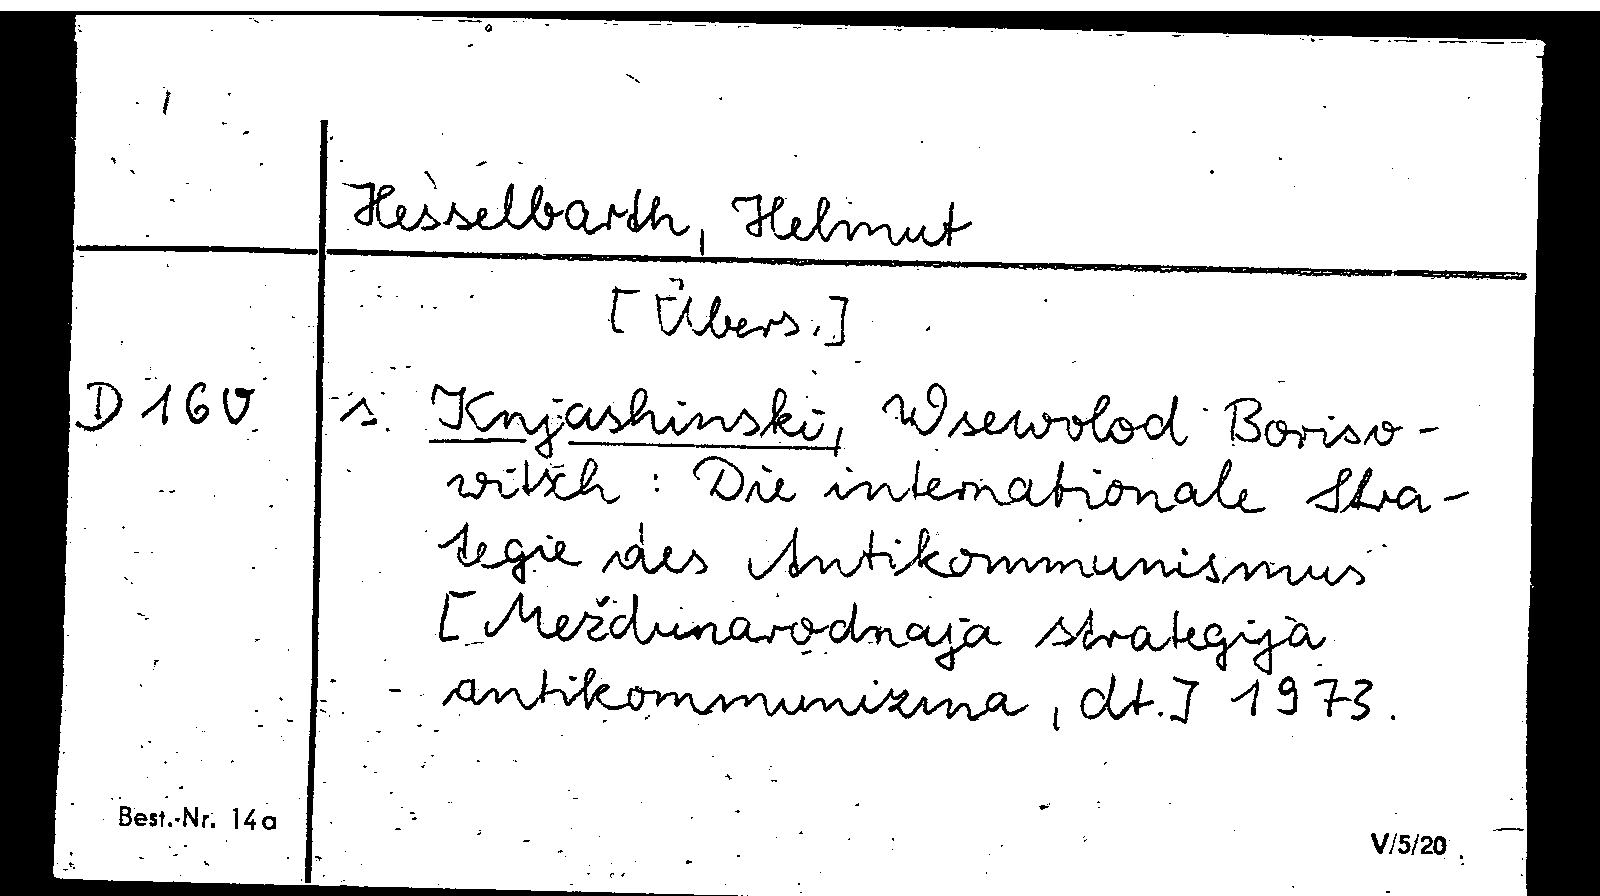 Hesselbarth, Helmut
[Übers.]
D 160 s. Knjashinski, Wsewolod Boriso-
witsch : Die internationale Stra-
tegie des Antikommunismus
[Meždunarodnaja strategija
antikommunizma, dt.] 1973.
Best.-Nr. 14a
V/5/20